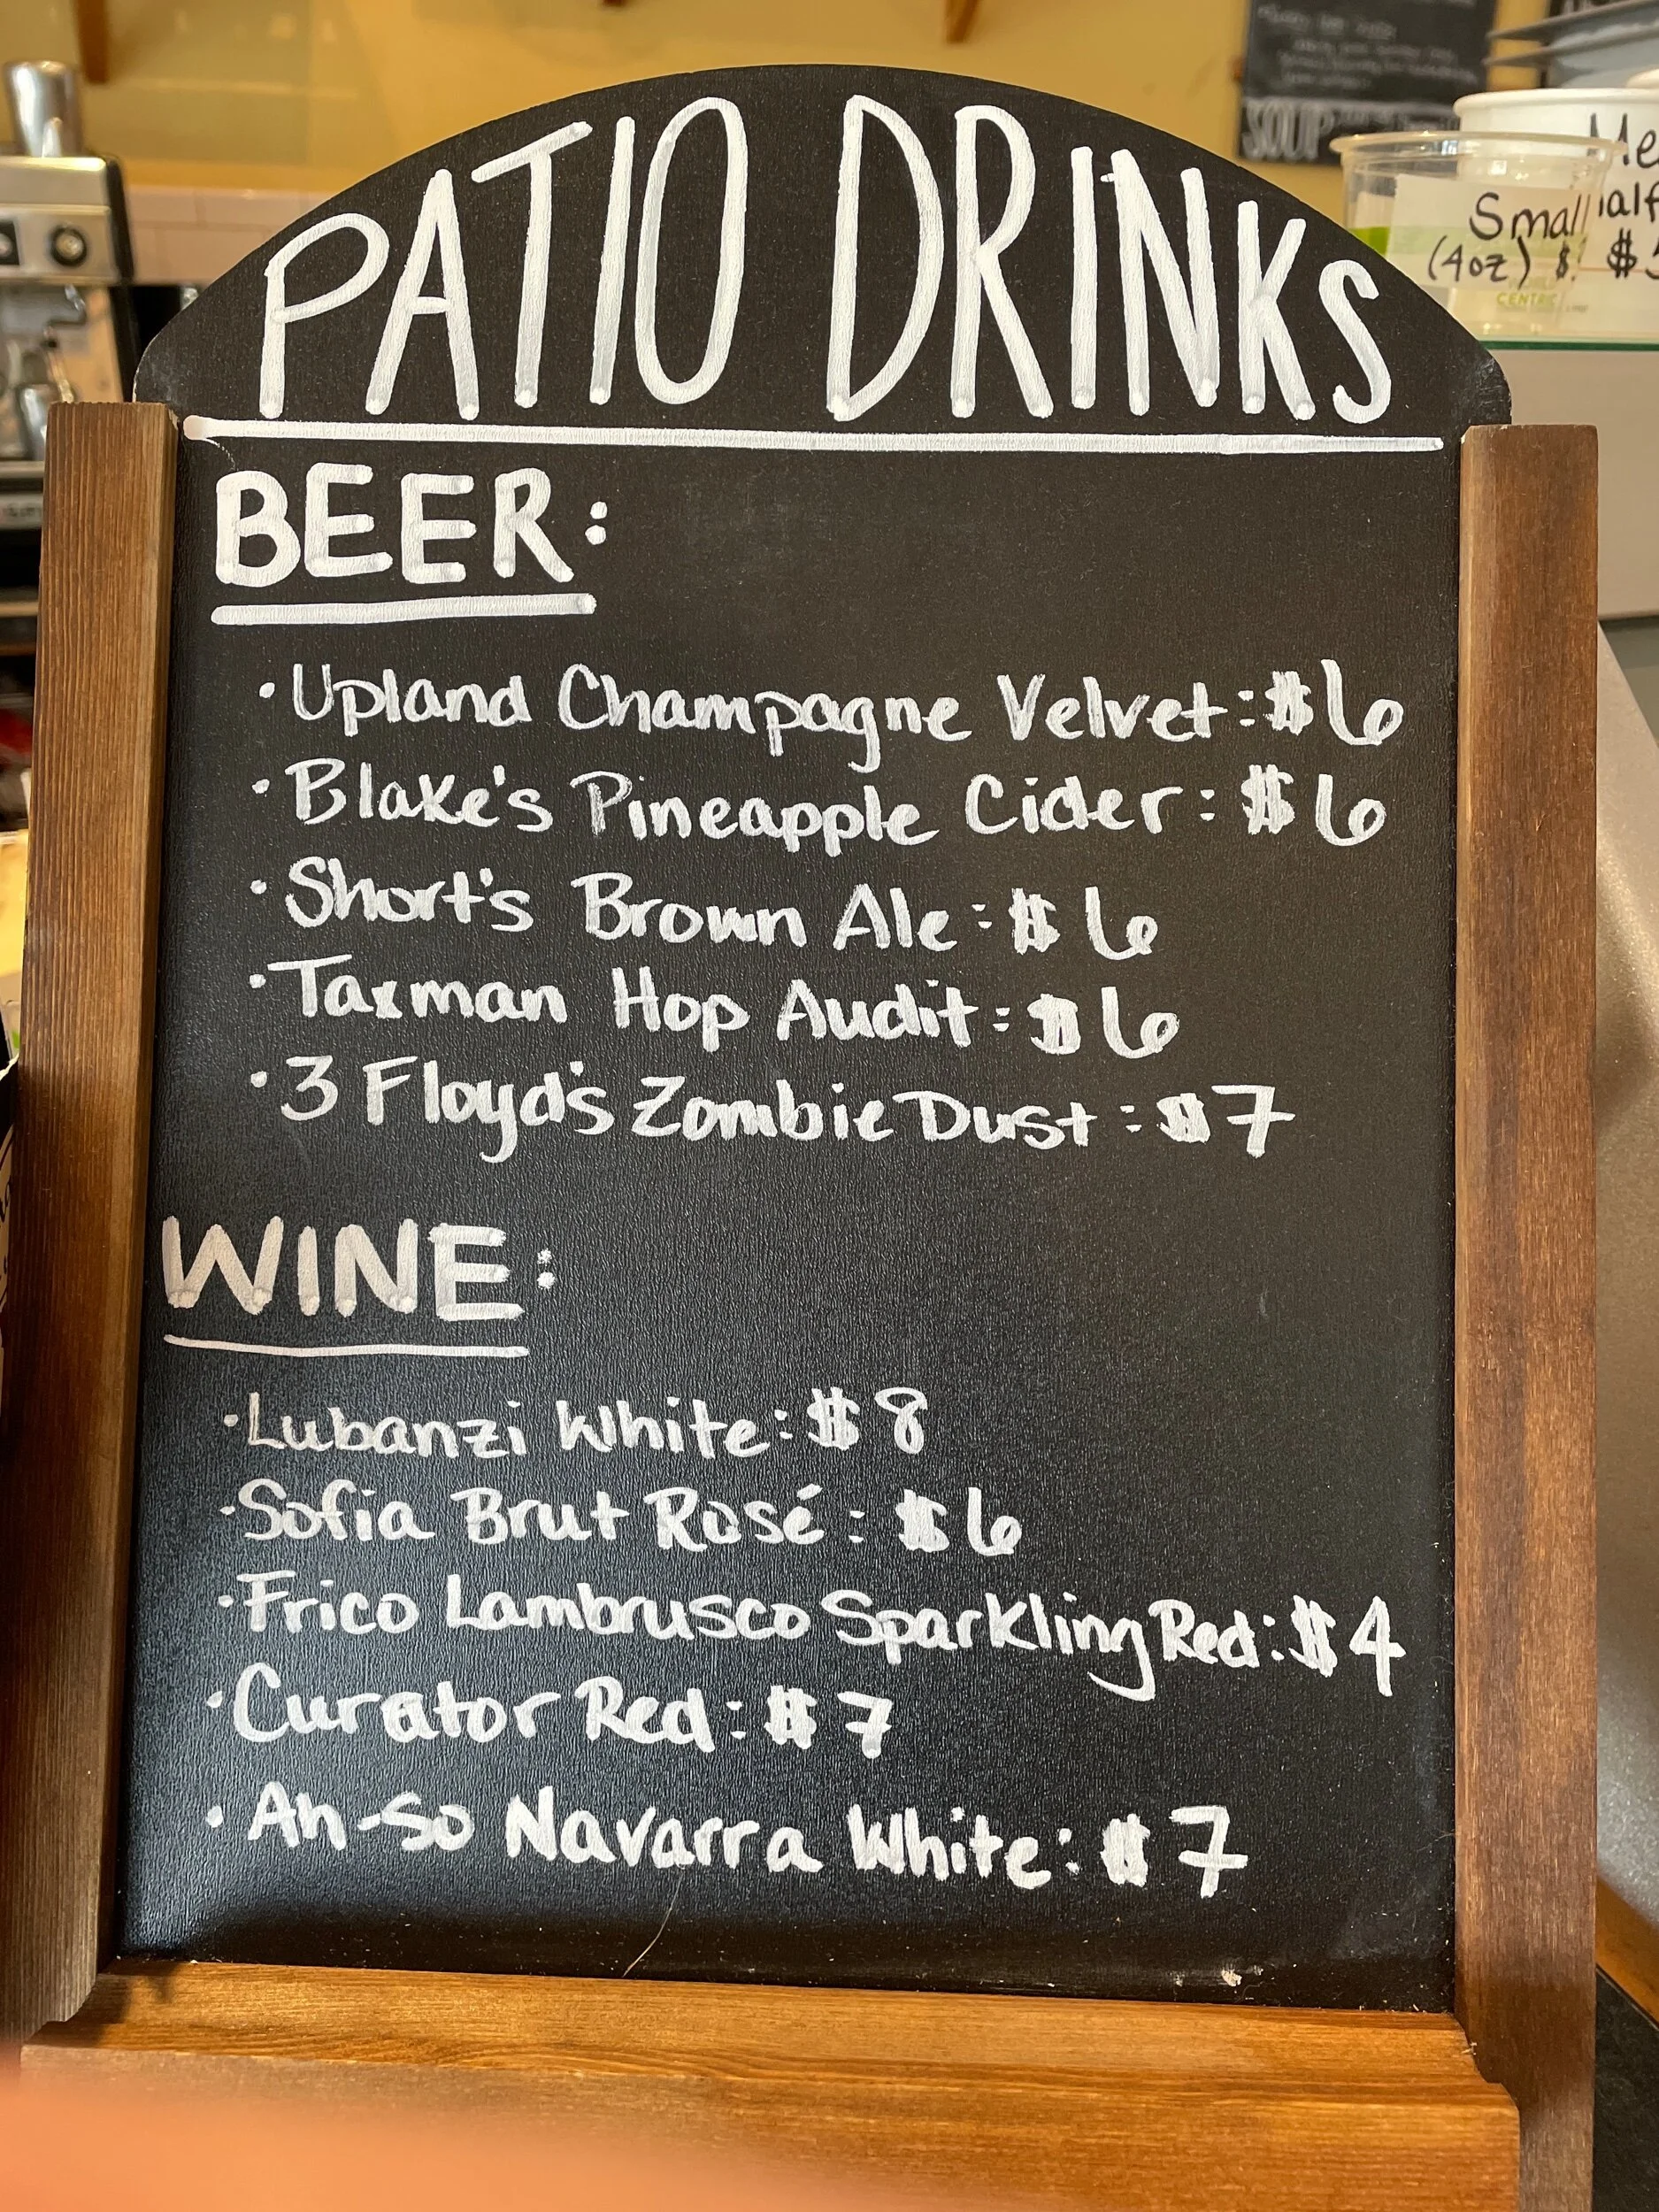 PATIO DRINKS
BEER:
• Upland Champagne Velvet: $6
• Blake's Pineapple Cider: $6
• Short's Brown Ale: $6
• Taxman Hop Audit: $6
• 3 Floyd's Zombie Dust: $7
WINE:
• Lubanzi White: $8
• Sofia Brut Rosé: $6
• Frico Lambrusco Sparkling Red: $4
• Curator Red: $7
• An-so Navarra White: $7
SOUP
Small
(4oz) $
CENTRIC